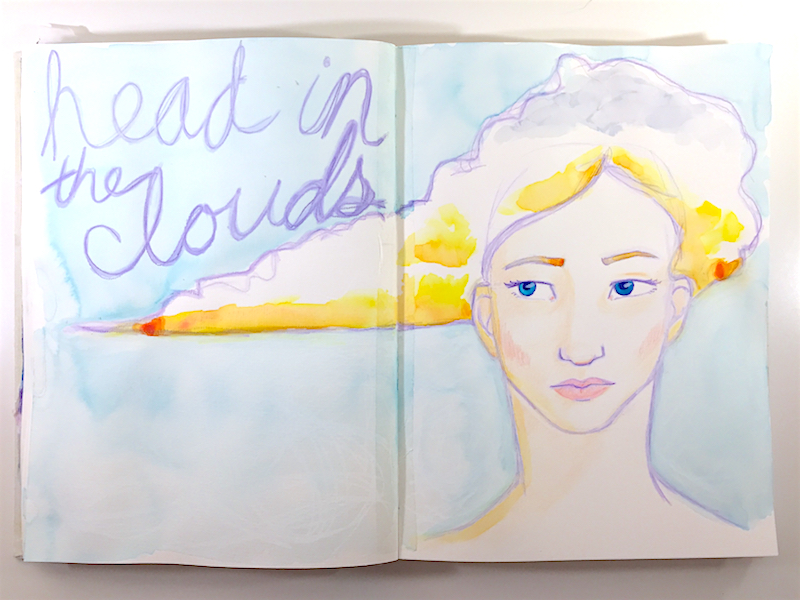 head in
the
clouds